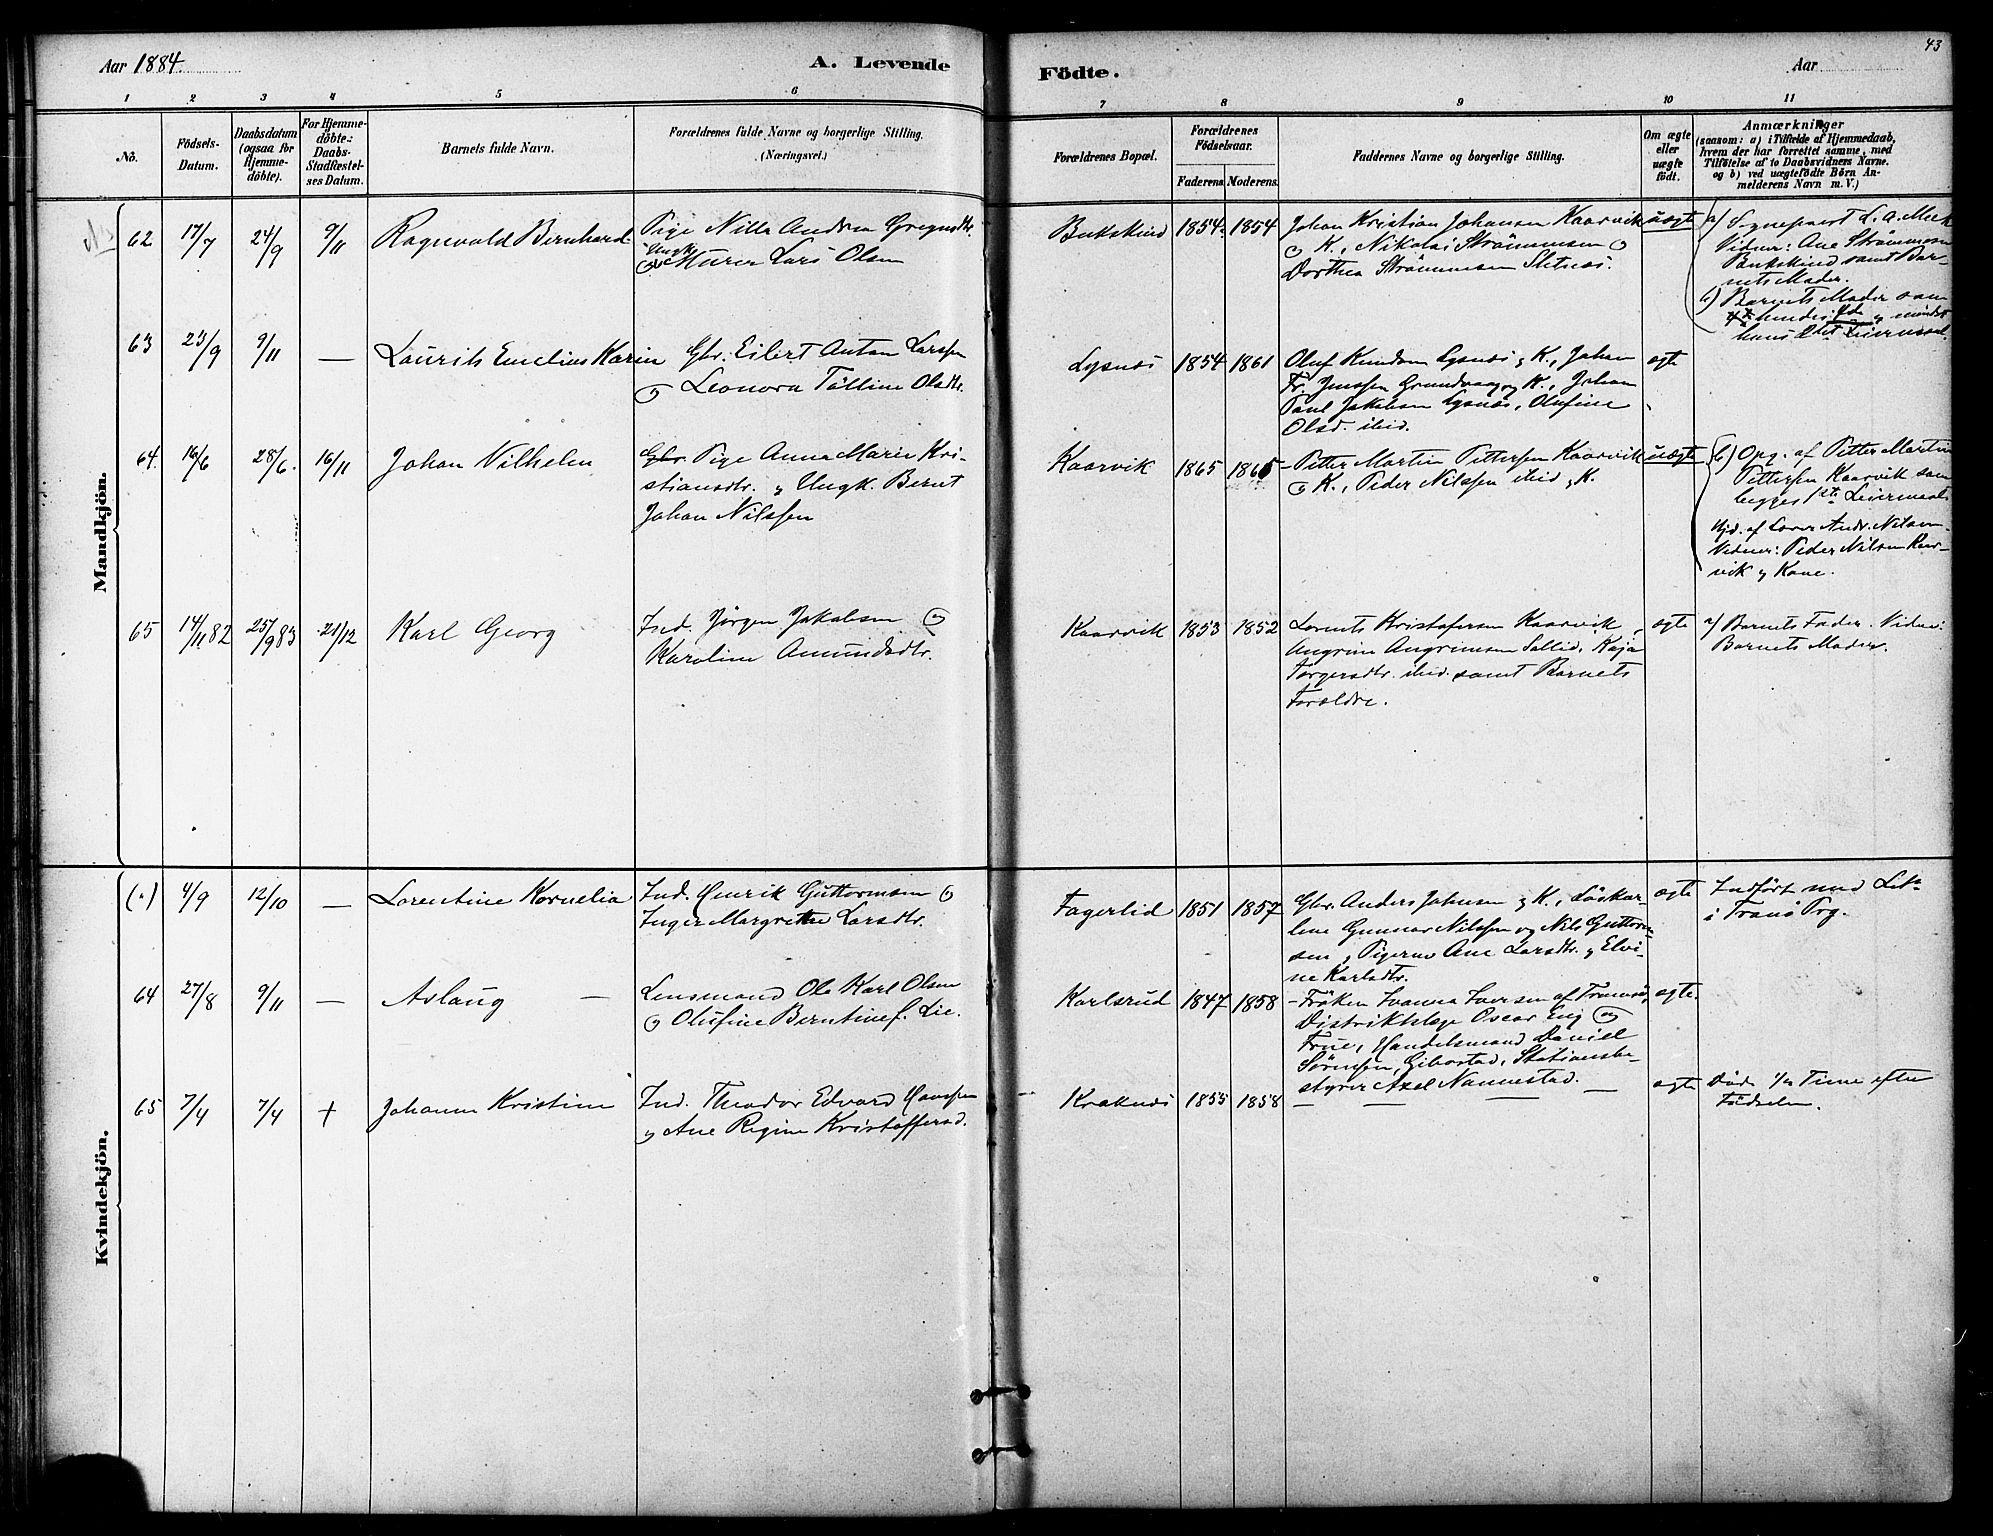 43
Aar 1884.
A. Levende
Födte.
Aar
1 2 3 4 5 6
7 8 9 10 11
No.
Födsels-
Datum.
Daabsdatum
(ogsaa for
Hjemme-
döbte).
For Hjemme-
döbte:
Daabs-
Stadfæstel-
ses Datum.
Barnets fulde Navn.
Forældrenes fulde Navne og borgerlige Stilling.
(Næringsvei.)
Forældrenes Bopæl.
Forældrenes
Födselsaar.
Faderens. Moderens.
Faddernes Navne og borgerlige Stilling.
Om ægte
eller
uægte
födt.
Anmærkninger
(saasom: a) i Tilfælde af Hjemmedaab,
hvem der har forrettet samme, med
Tilföielse af to Daabsvidners Navne.
og b) ved uægtefödte Börn An-
melderens Navn m. V.)
Mandkjön.
62 17/7 24/9 9/11 Ragnvald Bernhard
Pige Nilla Andrea
Ungk.
Murer Lars Olsen
Bukskind 1854 1854
Johan Kristian Johansen Kaarvik
o K., Nikolai Strömmesen o
Dorthea Strömmesen Sletnæs.
uægte
a) Sogneprest L. A.
Vidner: Ane Strömmesen
Bukskind samt Bar-
nets Moder.
b) Barnets Moder som
63 23/9 9/11 — Laurits Emelius Karin
Gbr. Eilert Anton Larssen
o Leonora Tölline Olsdtr.
Lysnæs 1854 1861
Oluf Knudsen Lysnæs & K., Johan
Fr. Jenssen Grundvaag & K., Johan
Paul Jakobsen Lysnæs, Olufine
Olsd. ibid.
ægte
64. 16/6 28/6. 16/11 Johan Vilhelm
Gbr. Pige Anna Marie Kri-
stiansdtr. & Ungk. Bernt
Johan Nilssen
Kaarvik 1865 1865
Petter Martin Pettersen Kaarvik
o K., Peder Nilssen ibid & K.
uægte
b) Opg. af Petter Martin
Pettersen Kaarvik som
begges 1ste Leiermaal.
Hjd. af Lærer Andr. Nilsen
Vidner: Peder Nilsen Kaar-
vik & Kone.
65 14/11 82 25/9 83 21/12 Karl Georg
Ind. Jörgen Jakobsen o
Karoline Amundsdtr.
Kaarvik 1853 1852
Lorents Kristofersen Kaarvik,
Angrim Angrimsen Sollid, Kaja
Törgersdtr. ibid. samt Barnets
Forældre.
ægte
a) Barnets Fader. Vidne:
Barnets Moder.
Kvindekjön.
4/9 12/10 — Lorentine Kornelia
Ind. Henrik Guttormsen o
Inger Margrethe Larsdtr.
Fagerlid 1851 1857
Gbr. Anders Johnsen & K., Löskar-
lene Gunnar Nilssen og Nils Guttorm-
sen, Pigerne Ane Larsdtr. & Elvi-
ne Karlsdtr.
ægte
Indfört med
i Tranö Prg.
64 27/8 9/11 — Aslaug —
Lensmand Ole Karl Olsen
o Olufine Berntine f. Lie.
Karlsrud 1847 1858
Fröken Ivanna Iversen af Tromsö,
Distriktslæge Oscar Eng o
Frue, Handelsmand Daniel
Sörensen, Gibostad, Stationsbe-
styrer Axel Nannestad.
ægte.
65 7/4 7/4 + Johanne Kristine
Ind. Theodor Edvard Hanssen
& Ane Regine Kristoffersd.
Kraknæs 1855 1858 — — — —
ægte
Död 1/2 Time efter
Födselen.